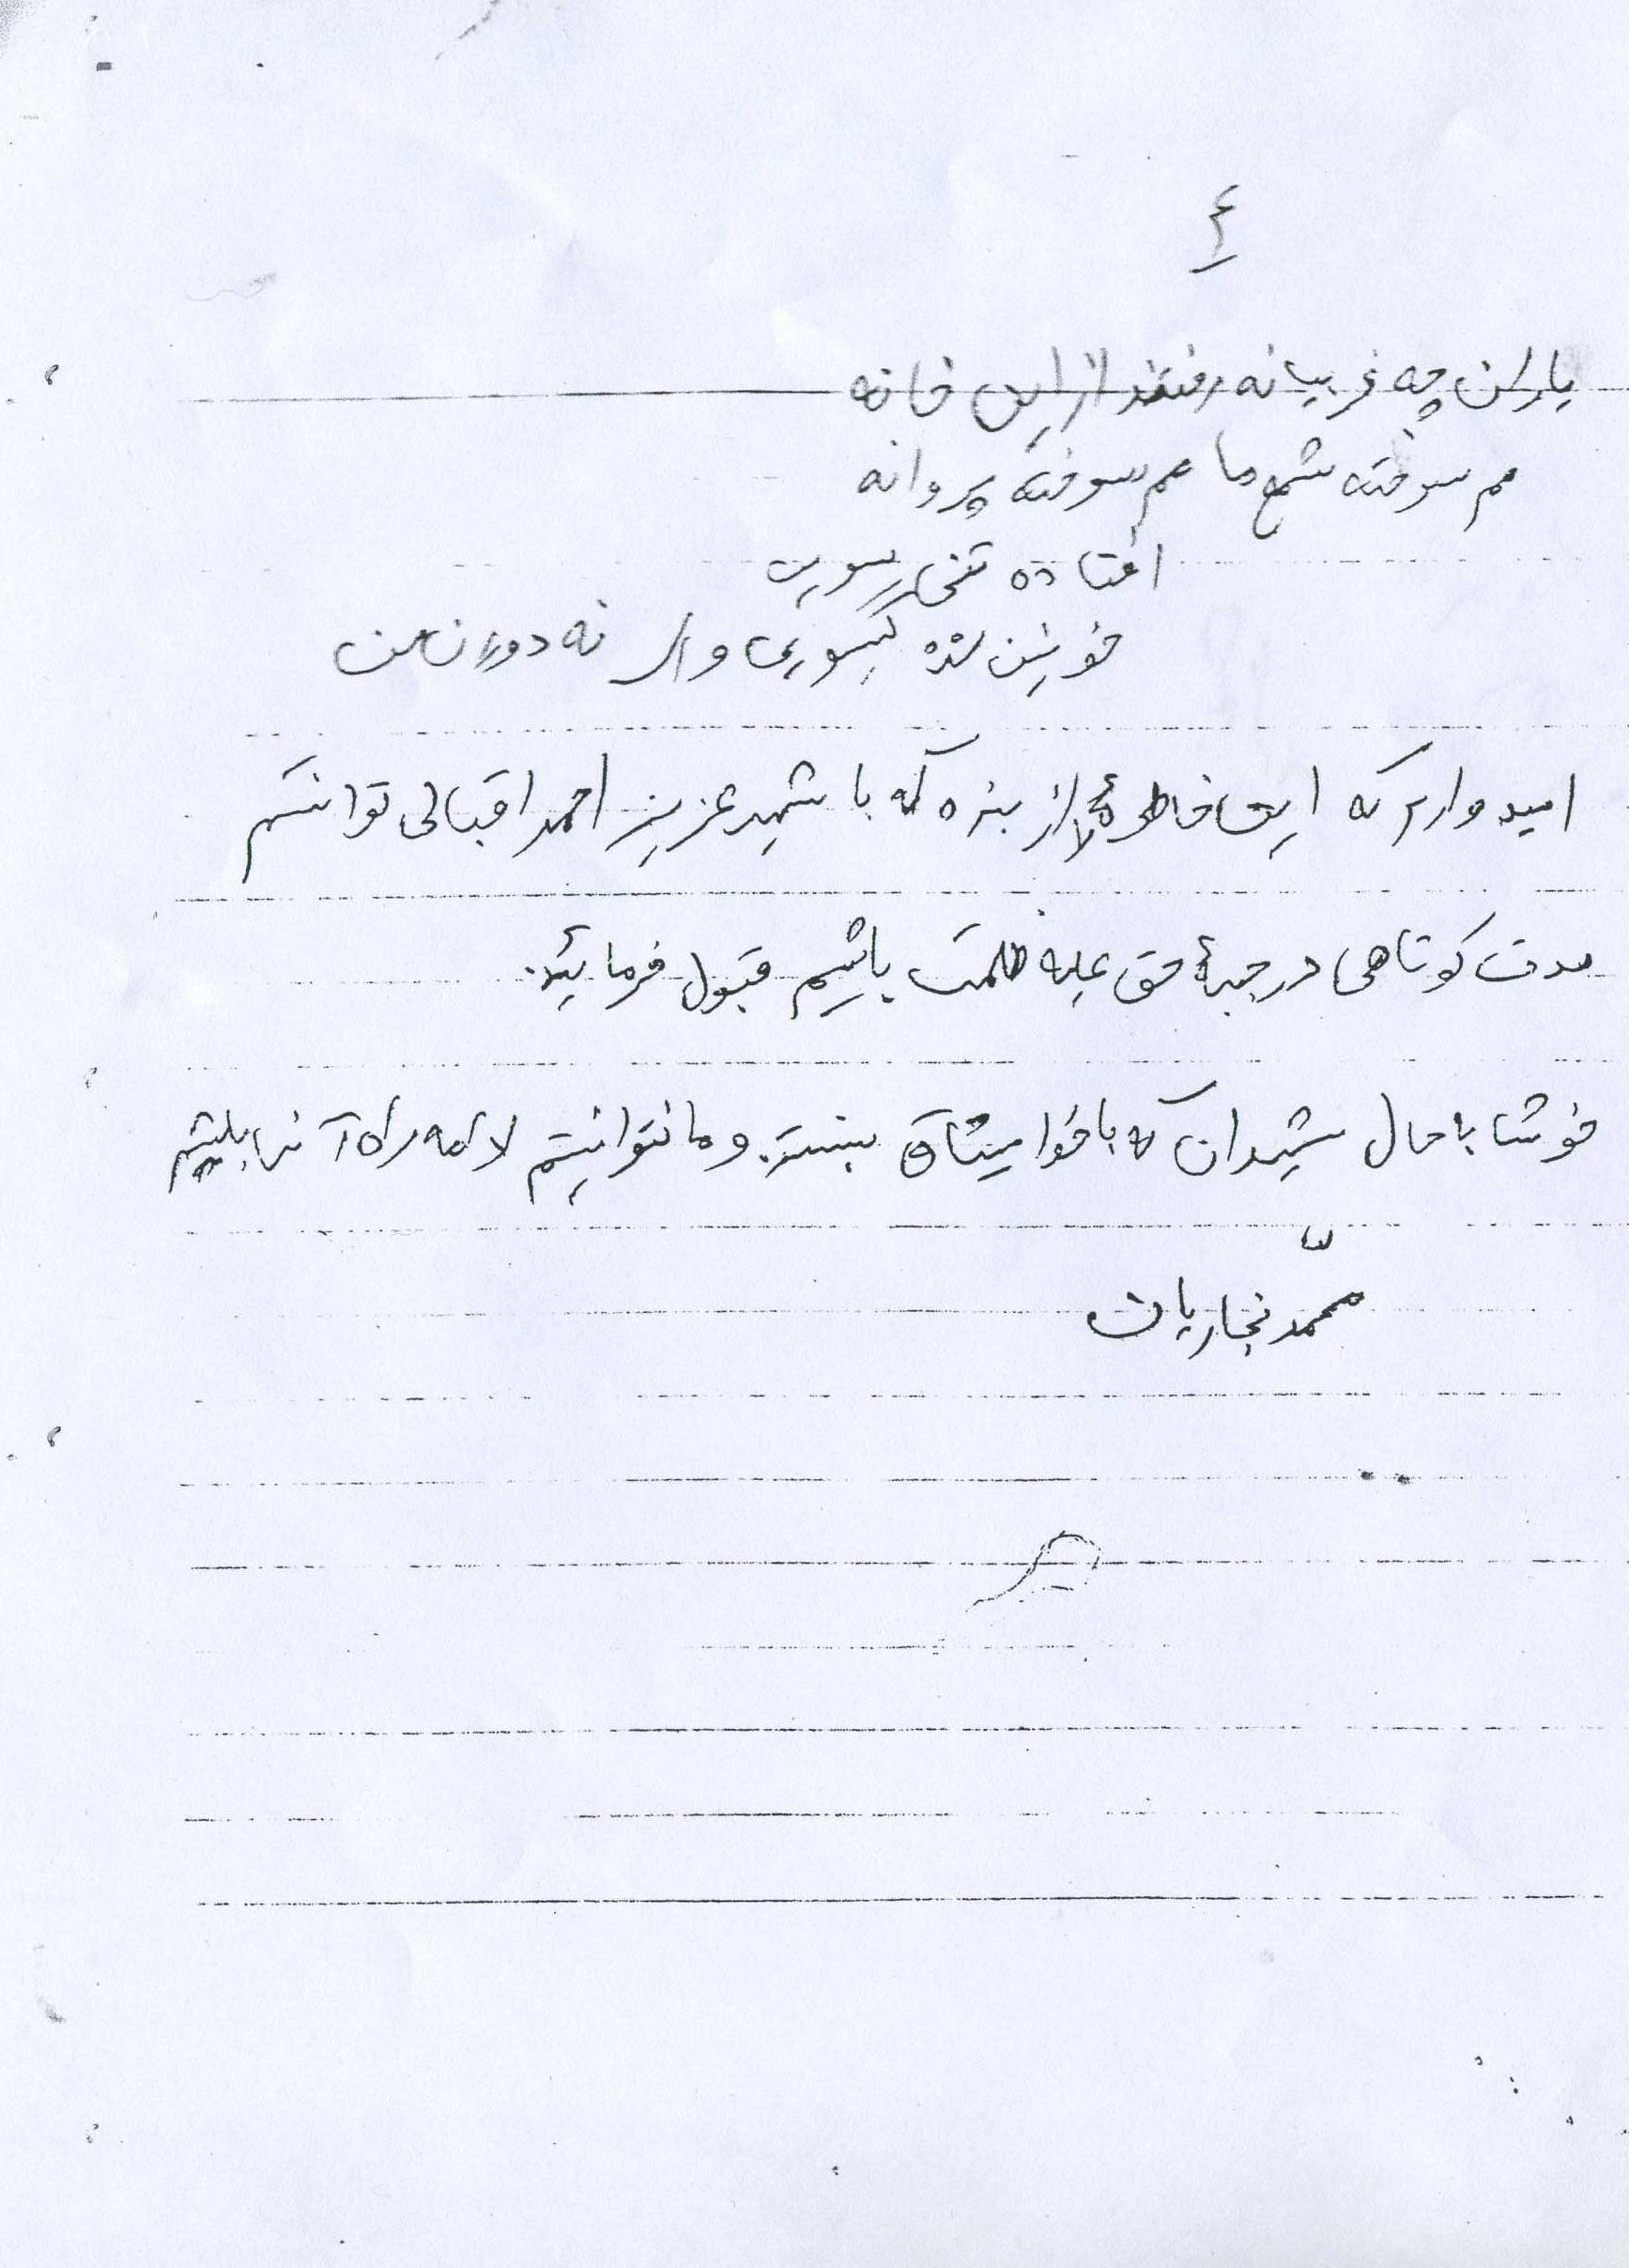 ٤
یاران چه غریبانه رفتند از این خانه
هم سوخته شمع ما هم سوخته پروانه
افتاده تنی سویی
خونین شده گیسویی وای نه دوران من
امیدوارم که این خاطره را از بنده که با شهید عزیز احمد اقبالی توانستم
مدت کوتاهی در جبهۀ حق علیه ظلمت باشیم قبول فرمائید.
خوشا با حال شهیدان که با خدا میثاق بستند. و ما نتوانستیم ادامه راه آنها باشیم
محمّد نجاریان